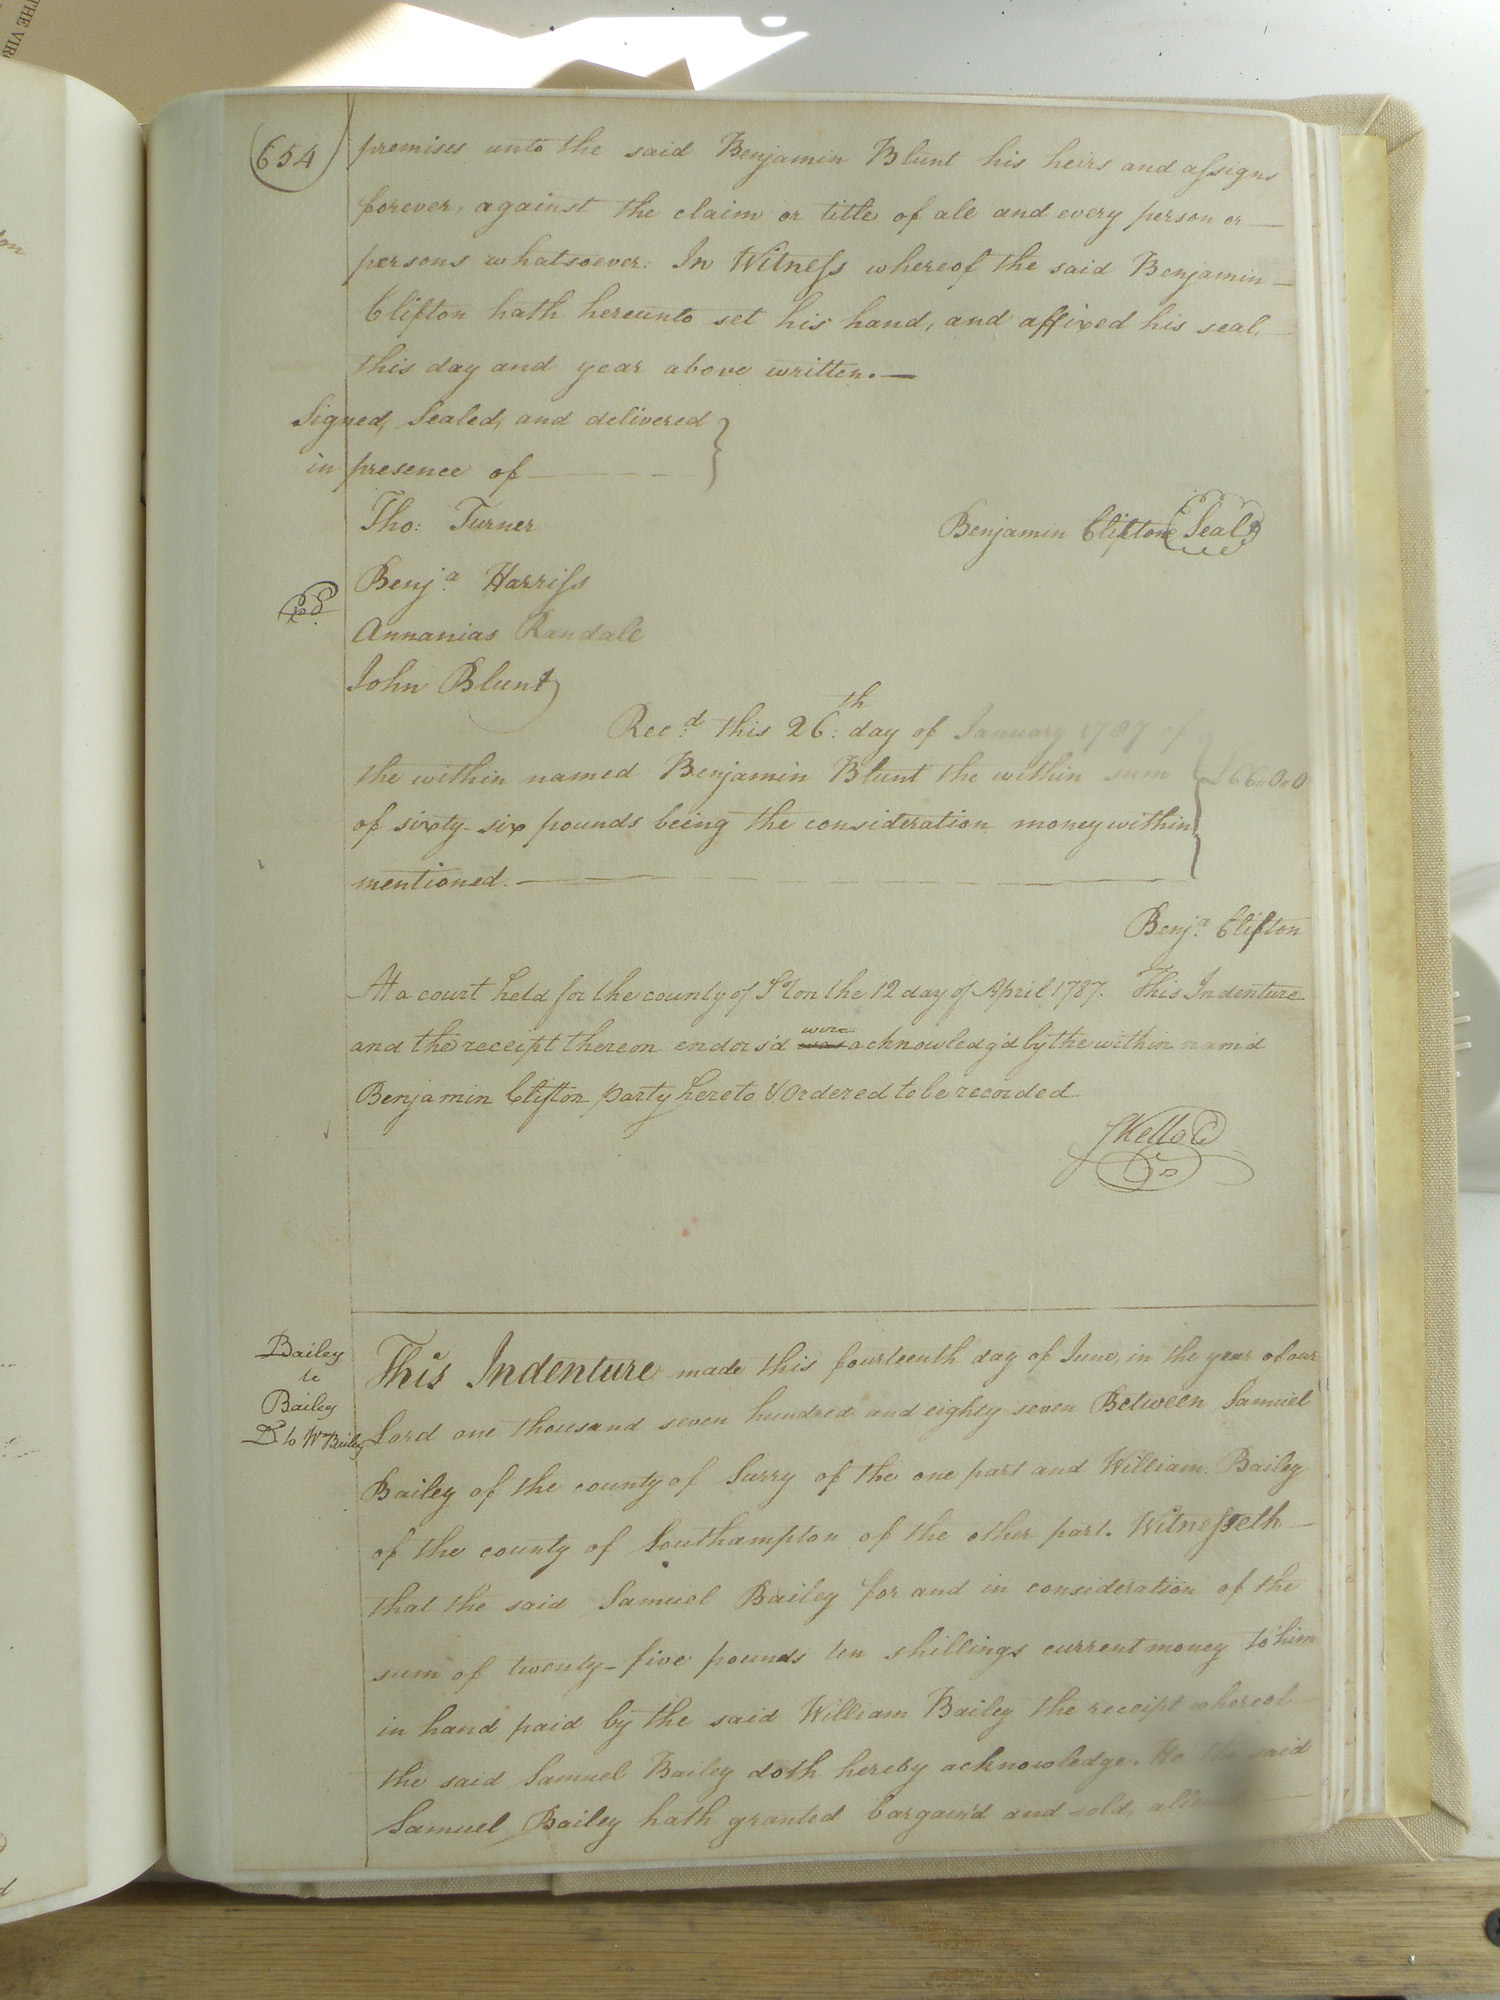 THE VIR
654
premises unto the said Benjamin Blunt his heirs and assigns
forever, against the claim or title of all and every person or
persons whatsoever. In Witness whereof the said Benjamin
Clifton hath hereunto set his hand, and affixed his seal,
this day and year above written.—
Signed, Sealed, and delivered
in presence of
Tho: Turner
Benjamin Clifton Seal
Benja. Harriss
Annanias Randall
John Blunt
Recd. this 26th: day of January 1787 of
the within named Benjamin Blunt the within sum £66..0..0
of sixty-six pounds being the consideration money within
mentioned.
Benja. Clifton
At a court held for the county of Sºton the 12 day of April 1787. This Indenture
and the receipt thereon endors'd was were acknowledg'd by the within nam'd
Benjamin Clifton party hereto & Ordered to be recorded
SKello C
Bailey
to
Bailey
D to Wm Bailey
This Indenture made this fourteenth day of June, in the year of our
Lord one thousand seven hundred and eighty seven Between Samuel
Bailey of the county of Surry of the one part and William Bailey
of the county of Southampton of the other part. Witnesseth
that the said Samuel Bailey for and in consideration of the
sum of twenty-five pounds ten shillings current money to him
in hand paid by the said William Bailey the receipt whereof
the said Samuel Bailey doth hereby acknowledge. He the said
Samuel Bailey hath granted bargain'd and sold,